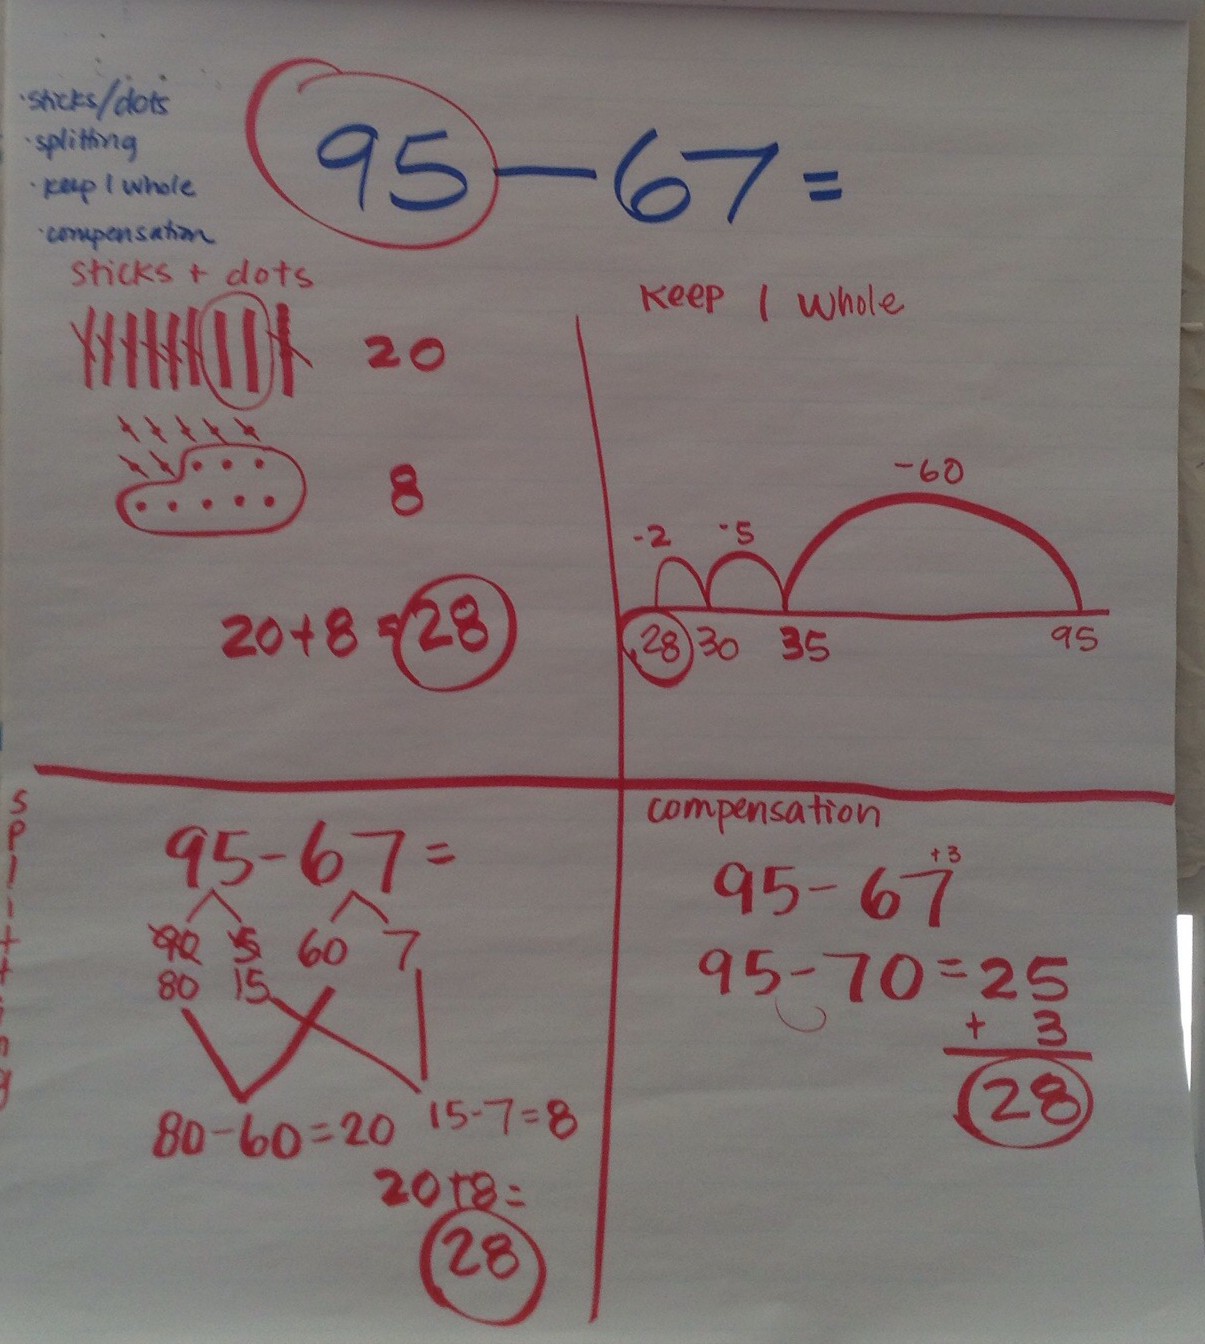 · sticks/dots
· splitting
· keep 1 whole
· compensation
95 - 67 =
sticks + dots
20
8
20+8 = 28
Keep 1 whole
-60
-2 -5
28 30 35 95
splitting
95-67=
90 5 60 7
80 15
80-60=20 15-7=8
20+8=
28
compensation
+3
95-67
95-70=25
+ 3
28